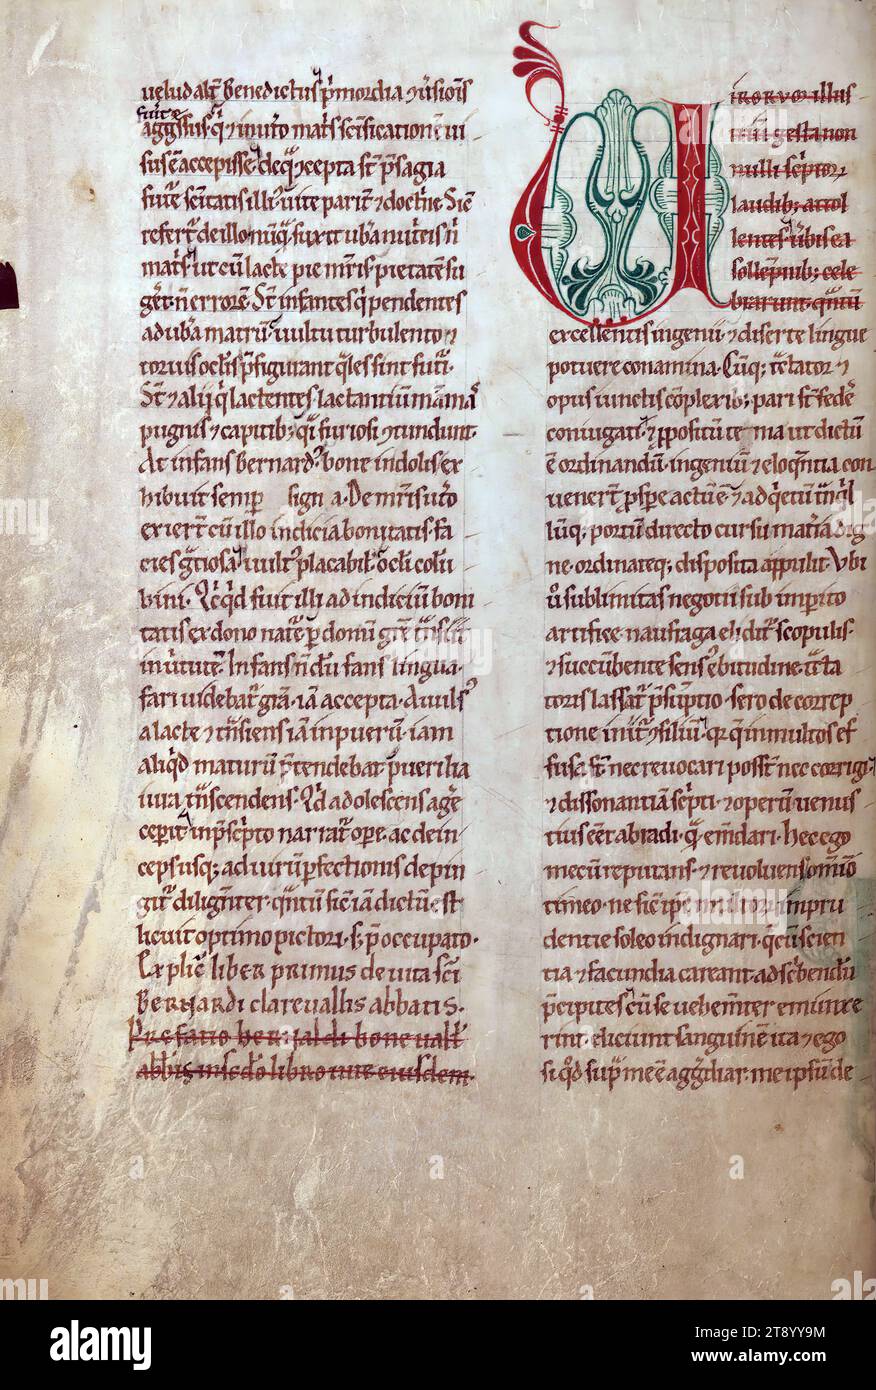 uelud alt Benedictus p̱mordia ⁊ uisioīs
fuit e
aggssus q̇ ⁊ inuito matṡ scīficationē ui
sus ē accepisse. de q̇ ꝯcepta st̄ p̄sagia
fuťe scītatis illi uite parit̄ ⁊ doctⁱne. Sic
refert̃ de illo nūq̃ suxit ubera nutⁱcis ñ
matⁱs. ut cū lacte pie mr̄is pietatē su
geret. n̄ errore. St̄ infantes q̇ pendentes
ad ubera matrū uultu turbulento ⁊
toruis ocl̄is p̄figurant q̃les sint futⁱ.
St̄ ⁊ alij q̇ lactentes lactantiū mamas
pugnis ⁊ capitib; q̃si furiosi ꝯtundunt.
At infans bernard᷒ bone indolis ex
hibuit semp signa. De mr̄is utō
exiert̄ cū illo indicia bonitatis. fa
cies gr̄tiosa uult᷒ placabil᷒ ocl̄i colū
bini. Qⁱcq̇d fuit illi ad indiciū boni
tatis ex dono nature p̱ donū grē tⁿsiit
in uⁱtutē. Infans nōdū fans lingua.
fari uidebat̃ grām. iā accepta. Auuls᷒
a lacte ⁊ tⁿsiens iā in puerū. iam
aliq̇d maturū p̄tendebat puerilia
iura tⁿscendens. Qd̄ adolescens agere
ceperit in p̄scⁱpto nariat̃ ope. ac dein
ceps usq; ad uirū p̱fectionis depin
git̃ diligent̄er. q̃ntū sic iā dictū est
licuit optimo pictori. s; p̄occupato.
Explic̄ liber primus de uita scī
Bernardi clareuallis abbatis.
Prefatio bernaldi boneuall̄
abb̄is in sc̄do libro uite eiusdem.
irorum illus
trium gesta non
nulli scⁱptores
laudib; attol
lentes. ubi sca
sollēpnib; cele
brarunt. q̃ntū
excellentis ingenii ⁊ diserte lingue
potuere conamina. Cūq; telator ⁊
opus iunctis cōplexib; pari st̄ federe
coniugati. ⁊ ꝓpositū te ma ut dictū
ē ordinandū. ingeniū ⁊ eloq̃ntia con
uenert̄ ꝓsp̱e actū ē. ⁊ ad q̇etū tⁿq̇l
lūq; portū directo cursu mat̄ia dig
ne. ordinateq; disposita appulit. Vbi
u̇ sublimitas negotii sub imp̱ito
artifice. naufraga elidit̃ scopulis.
⁊ succūbente sens᷒ ebitudine. tela
toris lassat̃ p̄sūptio. sero de correp
tione inuitⁱ ⁊ siliū. q̃r q̇ in multos ef
fusa st̄. nec reuocari poss̄t nec corrigi.
⁊ dissonantiā scⁱpti. ⁊ operū uenus
tius ēet abradi. q̃ emdari. Hec ego
mecū reputans. ⁊ reuoluens om̄ino
timeo. ne sic̄ ipse malior inpru
dentie soleo indignari. q̇ cū scien
tia ⁊ facundia careant. ad scⁱbendū
p̄cipites cū se uehem̄ter emunxe
rint. eliciunt sanguinē ita ⁊ ego
si q̇d sup̱ me ē aggrediar. me ipsū de